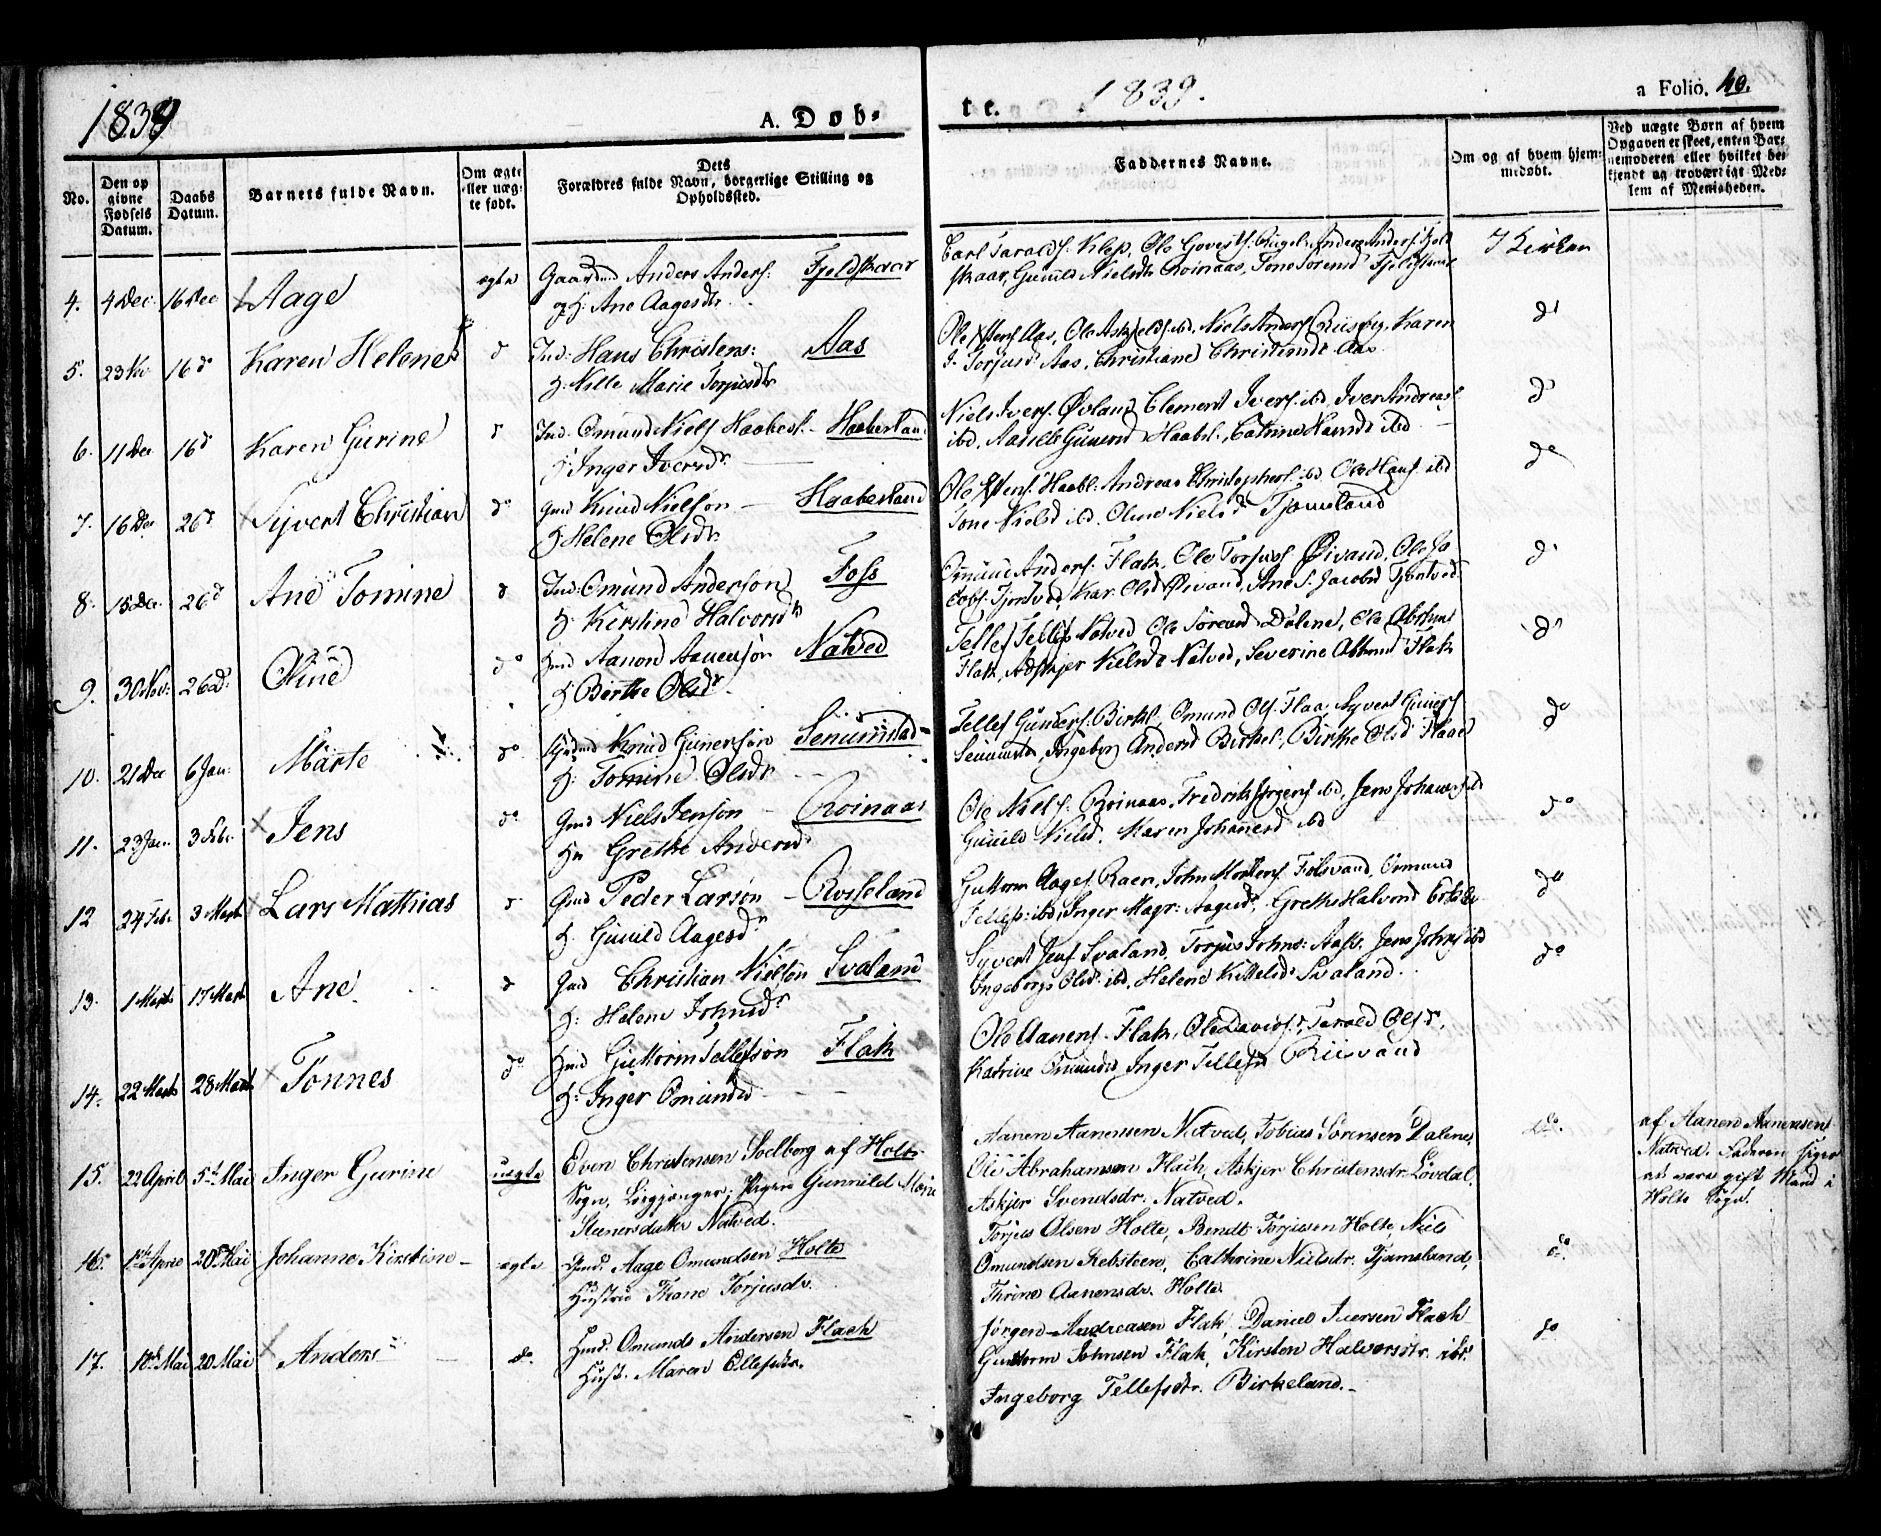 1839
A. Døb-
te.
1839.
a Folio. 40.
No.
Den op
givne
Fødsels
Datum.
Daabs
Datum.
Barnets fulde Navn.
Om ægte
eller uæg-
te født.
Dets
Forældres fulde Navn, borgerlige Stilling og
Opholdssted.
Faddernes Navne.
Om og af hvem hjem-
medøbt.
Ved uægte Børn af hvem
Opgaven er skeet, enten Bar-
nemoderen eller hvilket be-
kjendt og troværdigt Med-
lem af Menigheden.
4. 4 Dec. 16 Dec Aage ægte Gaardmd Anders Anders: Fjeldskaar
og H: Ane Aagesdtr.
Carl Taralds: Klep, Ole
skaar, Gunild Nielsdtr Roinaas, Tone Sørensd Fjeldskaar
I Kirken
5. 23 Nov 16 d Karen Helene d Ind: Hans Christens: Aas
H: Nille Marie Torjusdtr
Aas, Ole ibd, Niels Anders Karen
Torjusd Aas, Christiane Christensdt Aas
do
6. 11 Dec 16 d Karen Gurine d Ind. Omund Niels Haabesl. Haabesland
H Inger Iversdr.
Niels Ivers. Øvland Clement Ivers. ibd, Iver Andreas
ibd, Haabsl., Catrine Hansdt ibd
do
7. 16 Dec 26 d Syvert Christian do Gmd Knud Nielson Haabesland
H Helene Olsdr.
Haabl: Andreas Christophers. ibd Ole Hans ibd
Tone Nielsd ibd. Oline Nielsd Tjomsland
do
8. 15 Dec. 26 d Ane Tomine d Ind: Omund Anderson Foss
H. Kirstine Halvorsdtr
Omund Anders. Flak, Ole Torjus Øivand, Ole Ja
cobs. Tjontved, Kar. Olsd Øivand, Ane S. Jacobsd Tjontved
do
9. 30 Nov: 26 d: Oline do Hmd Aanon Aanenson Natved
H Berthe Olsdr.
Tellef Tellefs Natved Ole Sørensd Dalene, Ole
Flak, Nielsdt Natved, Severine Flak
do
10. 21 Dec 6 Jan. Märte do Knud Gunerson Senumstad
H. Tomine Olsdr
Tellef Gunders. Birkl., Omund Ols. Flaa, Syvert Guners
Senumst, Ingeborg Andersd Birkel., Birthe Olsd Flaae
do
11. 23 Jan. 3 Febr. Jens do Gmd Niels Jenson Roinaas
Hu Grethe Andersd
Ole Niels. Roinaas, Fredrik Jørgens ibd, Jens Johanes ibd
Gunild Nielsd. Karen Johanesd ibd
do
12 24 Febr. 3 Marts Lars Mathias d Gmd Peder Larson Rosseland
H. Gunild Aagesdr
Guttorm Aages. Raen, John Mortens Omund
Tellefs: ibd, Inger Magr: Aagesd, Grethe Halvorsd
do
13. 1 Marts 17 Marts Ane d Gmd Christian Nielson Svaland
H: Helene Johnsdr
Syvert Jens Svaland, Torjus Johns: Jens Johns ibd
Ingeborg Olsd ibd, Helene Kittelsd Svaland.
do
14. 22 Marts 28 Marts Tönnes do Hmd Guttorm Tellefson Flak
H: Inger Omundsd
Ole Aanens. Flak, Ole Davids., Tarald Ols
Katrine Omundsd Inger Tellefsd Riisvand
15. 22 April 5te Mai Inger Gurine uægte Even Christensen Soelberg af Holts
Sogn, Pigen Gunnild Marie
Steenersdatter Natved.
Aanen Aanensen Natved, Tobias Sørensen Dalene,
Ole Abrahamsen Flach, Askjer Christensdr. Løvdal,
Askjer Svendsdr. Natved.
do.
af Aanen Aanensen
Natved. Faderen siges
at være gift Mand i
Holts Sogn.
16. April 20de Mai Johanne Kirstine ægte Gmd. Aage Omundsen Holte
Hustrue Thone Torjusdr.
Torjus Olsen Holte, Bendt Torjusen Holte, Niels
Omundsen Rebsteen, Cathrine Nielsdr. Tjamsland,
Thrine Aanensdr. Holte.
do.
17. Mai 20 Mai Anders do. Hmd. Omund Andersen Flach
Hust. Maren Ellefsdr.
Jørgen Andreasen Flak, Daniel Iversen Flach
Guttorm Johnsen Flak, Kirsten Halvorsdr. ibd.
Ingeborg Tellefsdtr. Birkeland.
do